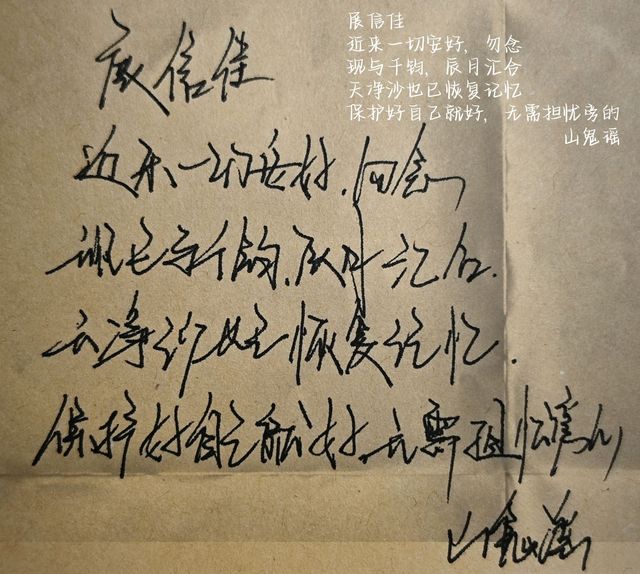 展信佳
近来一切安好，勿念
现与千钧，辰月汇合
天净沙也已恢复记忆
保护好自己就好，无需担忧旁的
山鬼谣
展信佳
近来一切安好，勿念
现已与千钧，辰月汇合.
天净沙也已恢复记忆.
保护好自己就好，无需担忧旁的
山鬼谣